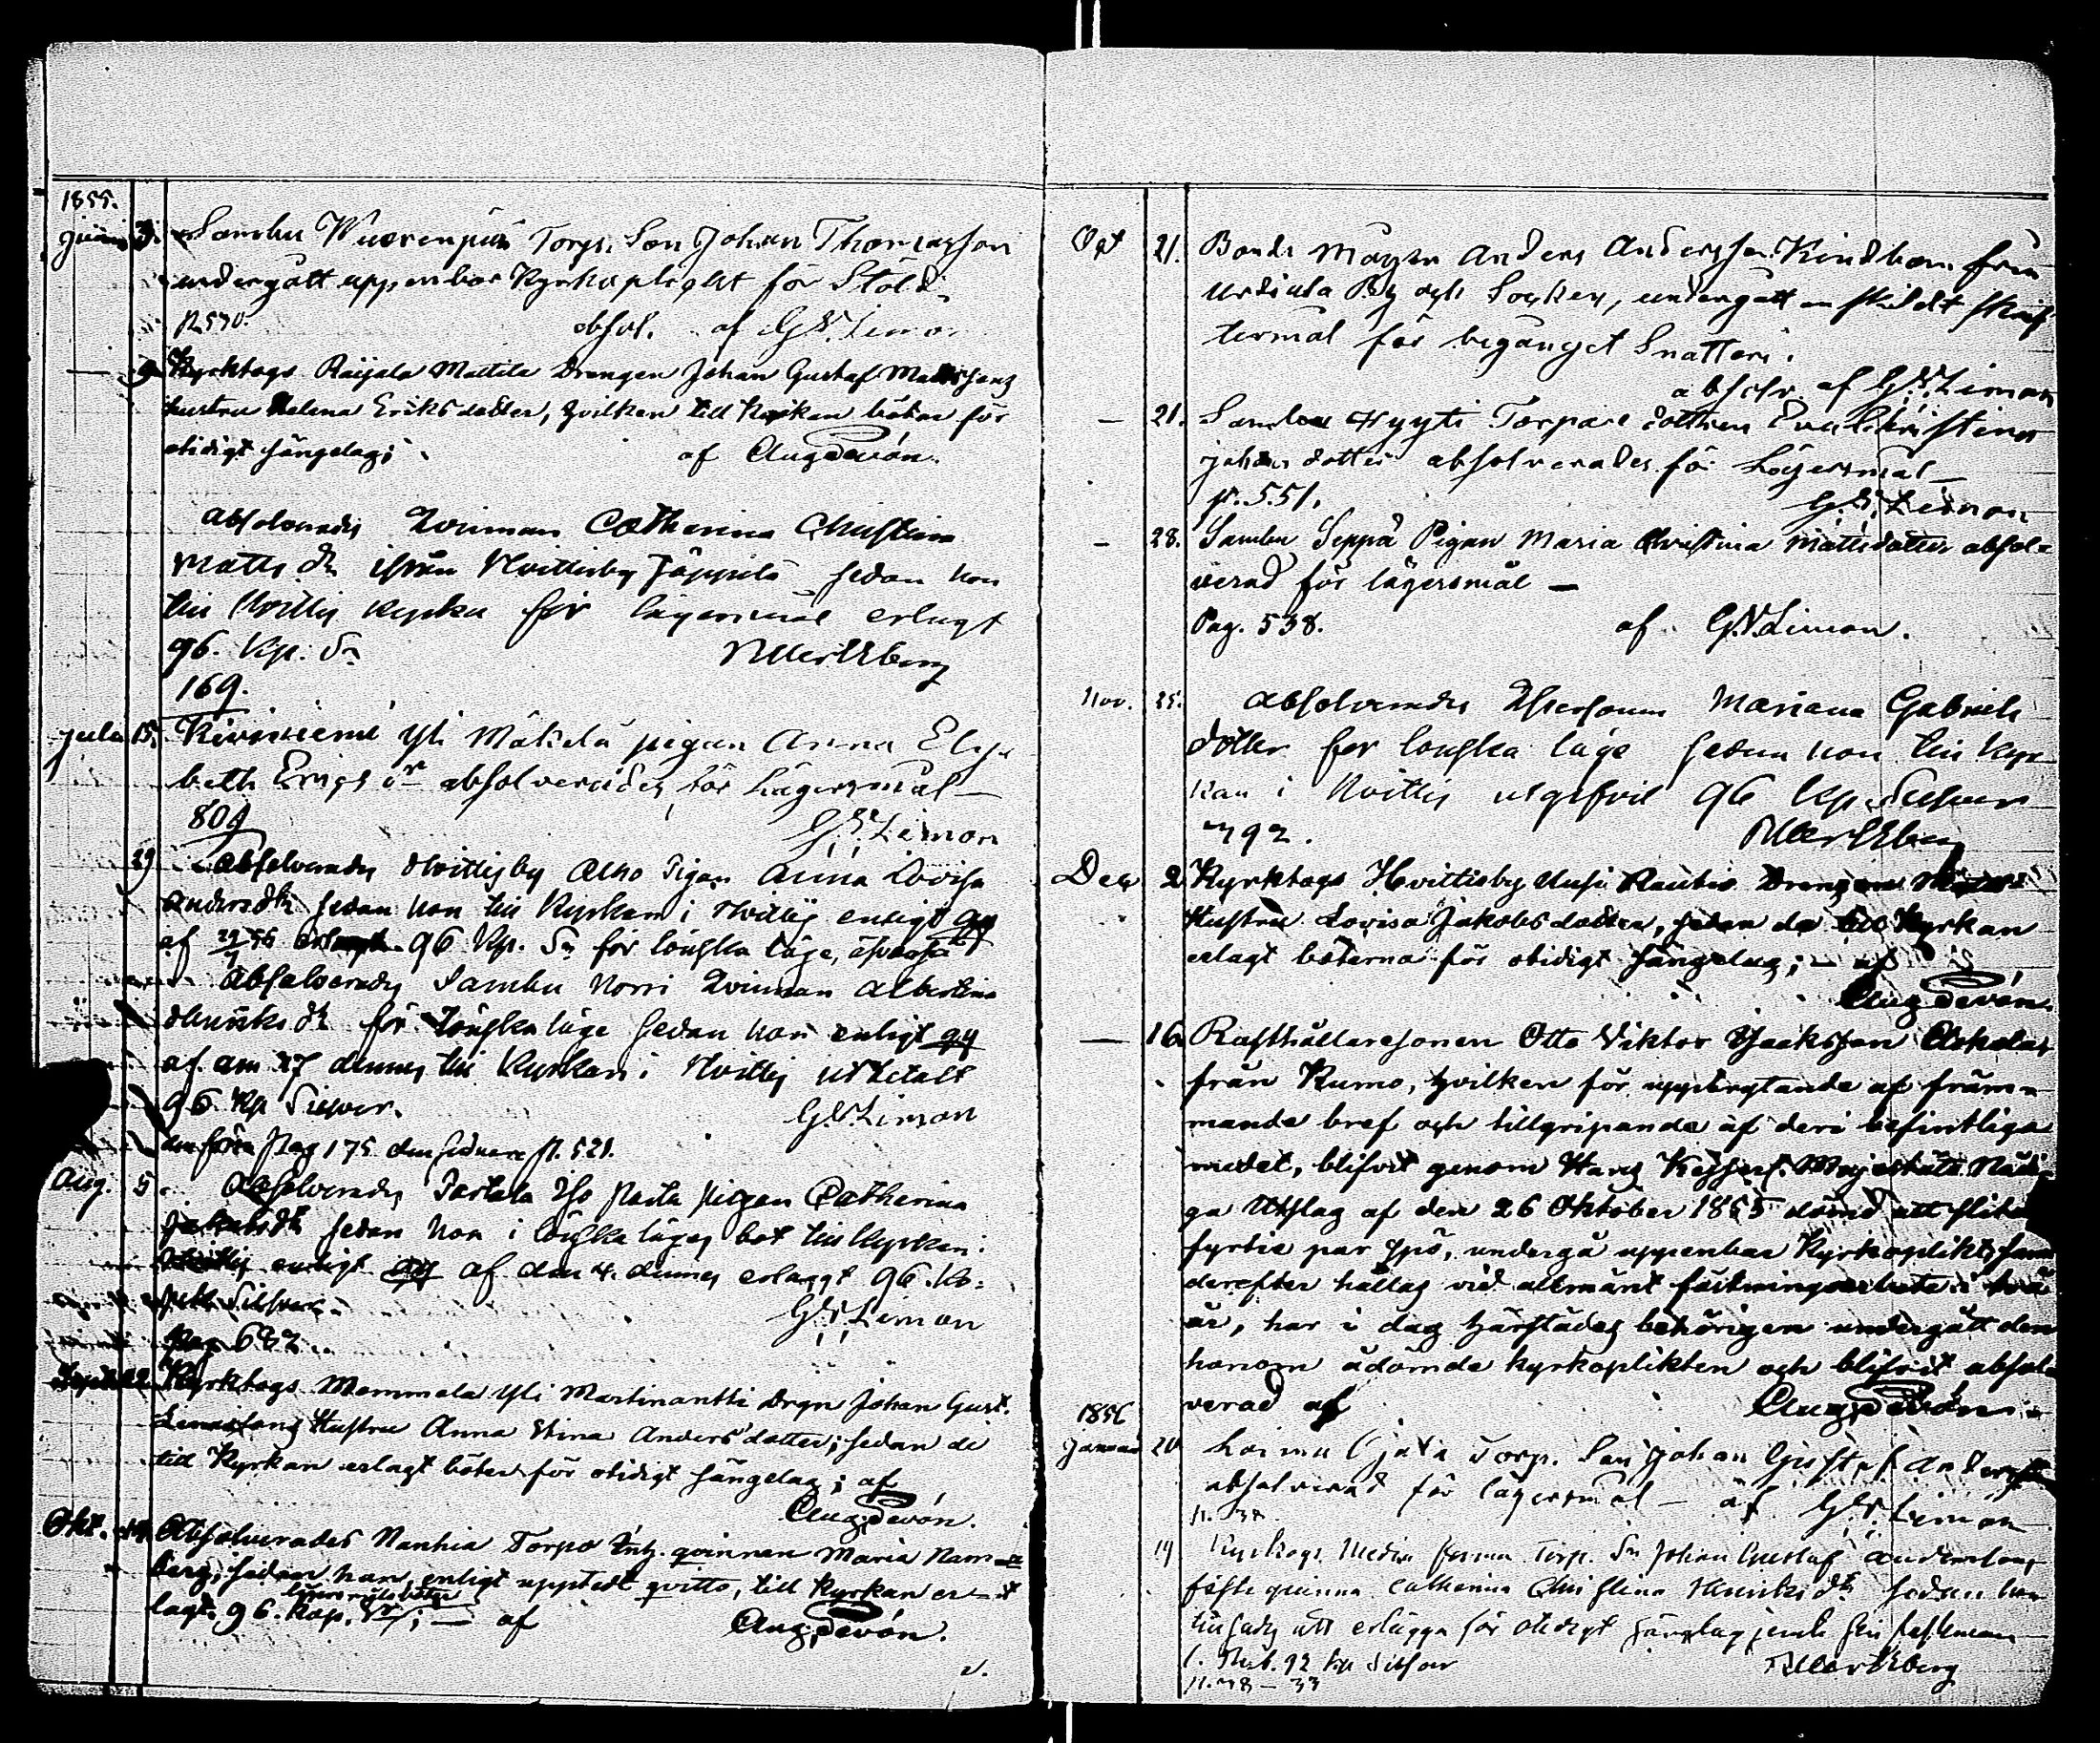 1855.
Juni 3. Sambu Wuorenpää Torp. Son Johan Thomasson
undergått uppenbar Kyrkoplicht för Stöld.
p. 570. absol. af G. W. Limon
— 9. Kyrktogs Raijala Mattila Drengen Johan Gustaf Mattssons
hustru Helena Eriksdotter, hvilken till Kyrkan bötar för
otidigt sängelag; af Aug. Devón.
Absolverades Qvinnan Catharina Christina
Matts dr ifrån Hvittisby Jäppilä sedan hon
till Hvittis kyrka för lägersmål erlagt
96. Kp. Sr
169.
Juli 15. Kiviniemi Yli Mäkelä pigan Anna Elisa
beth Erics dr absolverades för Lägersmål —
809 G. W. Limon
29 Absolverades Hvittisby Alho Pigan Anna Lovisa
Anders dr sedan hon till Kyrkan i Hvittis enligt qv
af 29/7 55 96 Kp. Sr för lönska läge,
Absolverades Sambu Norri Qvinnan Albertina
Henriks dr för lönska läge sedan hon enligt qv
af den 27 dennes till Kyrkan i Hvittis utbetalt
96 Kp Silfver. G. W. Limon
den förra Pag 175 den sednare p. 521.
Aug. 5 Absolverades pigan Catharina
Jakobs dr sedan hon i lönska läges bot till Kyrkan i
Hvittis enligt qv af den 4. dennes erlaggt 96. Ko=
pek Silfver. G. W. Limon
Pag 682
Sept 22 Kyrktogs Mommola Yli Martinantti Drgn Johan Gust.
Hustru Anna Stina Andersdotter; sedan de
till Kyrkan erlagt böter för otidigt sängelag; af
Aug. Devón.
Okt. 14. Absolverades Nanhia Torpa Inh. qvinnan Maria Nam=
berg, sedan hon enligt uppstedt qvitto, till Kyrkan er=
lagt 96. Kop. Sr lägersmåls böter; — af Aug. Devón.
v.
Oct 21. Bonde Mågen Anders Andersson Kindbom från
Urdiala By och Socken, undergått enskildt skrif
termål för begånget Snatteri.
absolv. af G. W. Limon
— 21. Sambu Hyyti Torpare dottren Eva Christina
Johans dotter absolverades för Lägersmål —
p. 551. G. W. Limon
— 28. Sambu Seppä Pigan Maria Christina Mattsdotter absol=
verad för lägersmål —
Pag. 538. af G. W. Limon.
Nov. 25. Absolverades Mariana Gabriels
dotter för lönska läge sedan hon till Kyr
kan i Hvittis utgifvit 96 Kp. Silfver
792.
Dec 2 Kyrktogs Hvittisby Uusi Rautio Drengen
Hustru Lovisa Jakobsdotter, sedan de till Kyrkan
erlagt böterna för otidigt sängelag; — af
Aug. Devón.
— 16. Rusthållaresonen Otto Viktor Isaksson Askola
från Kumo, hvilken för uppbrytande af främ=
mande bref och tillgripande af deri befintliga
medel, blifvit genom Hans Kejserl. Majestäts Nådi=
ga Utslag af den 26 Oktober 1855 dömd att slita
fyrtio par spö, undergå uppenbar Kyrkoplikt, samt
derefter hållas vid allmänt fästningsarbete i två
år, har i dag härstädes behörigen undergått den
honom ådömda kyrkoplikten och blifvit absol=
verad af Aug. Devón.
1856
Januari 20 Loima Ojala Torp. Son Johan Gustaf Andersson
absolverad för lägersmål — af G. W. Limon
p. 38.
Kyrktogs Torp. Sn Johan Gustaf Anderssons
fästeqvinna Catharina Christina Henriks dr sedan hon
att erlägga för otidigt sängelag
1. Rub. 92 kp Silfver
p. 78 — 33